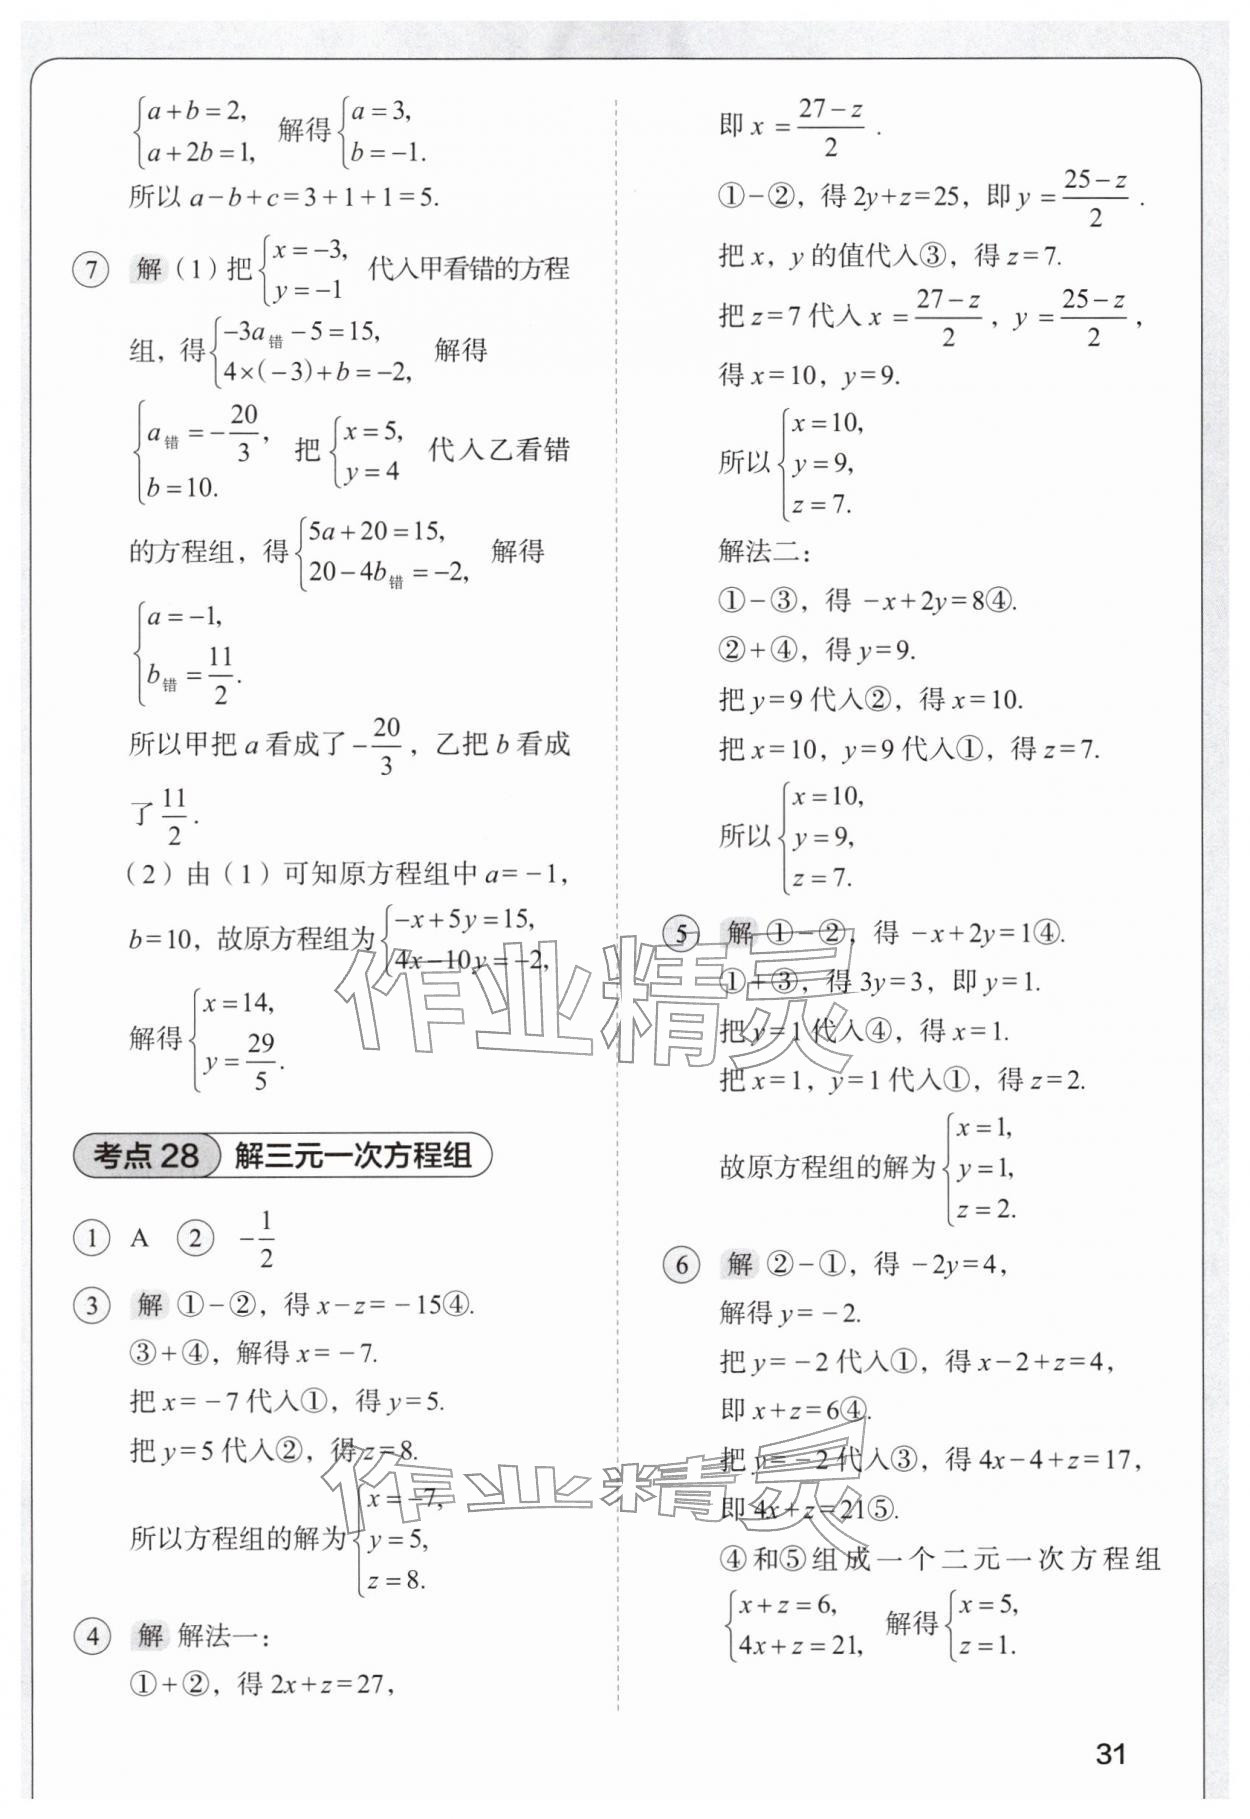 {a+b=2, a+2b=1, 解得{a=3, b=-1.
所以 a-b+c=3+1+1=5.
⑦ 解 (1)把{x=-3, y=-1 代入甲看错的方程
组，得{-3a错-5=15, 4×(-3)+b=-2, 解得
{a错=-20/3, b=10. 把{x=5, y=4 代入乙看错
的方程组，得{5a+20=15, 20-4b错=-2, 解得
{a=-1, b错=11/2.
所以甲把 a 看成了 -20/3，乙把 b 看成
了 11/2.
(2)由(1)可知原方程组中 a=-1,
b=10，故原方程组为{-x+5y=15, 4x-10y=-2,
解得{x=14, y=29/5.
考点 28 解三元一次方程组
① A ② -1/2
③ 解 ①-②，得 x-z=-15④.
③+④，解得 x=-7.
把 x=-7 代入①，得 y=5.
把 y=5 代入②，得 z=8.
所以方程组的解为{x=-7, y=5, z=8.
④ 解 解法一：
①+②，得 2x+z=27,
即 x=(27-z)/2.
①-②，得 2y+z=25，即 y=(25-z)/2.
把 x，y 的值代入③，得 z=7.
把 z=7 代入 x=(27-z)/2，y=(25-z)/2,
得 x=10，y=9.
所以{x=10, y=9, z=7.
解法二：
①-③，得 -x+2y=8④.
②+④，得 y=9.
把 y=9 代入②，得 x=10.
把 x=10，y=9 代入①，得 z=7.
所以{x=10, y=9, z=7.
⑤ 解 ①-②，得 -x+2y=1④.
①+③，得 3y=3，即 y=1.
把 y=1 代入④，得 x=1.
把 x=1，y=1 代入①，得 z=2.
故原方程组的解为{x=1, y=1, z=2.
⑥ 解 ②-①，得 -2y=4,
解得 y=-2.
把 y=-2 代入①，得 x-2+z=4,
即 x+z=6④.
把 y=-2 代入③，得 4x-4+z=17,
即 4x+z=21⑤.
④和⑤组成一个二元一次方程组
{x+z=6, 4x+z=21, 解得{x=5, z=1.
31
作业精灵
作业精灵